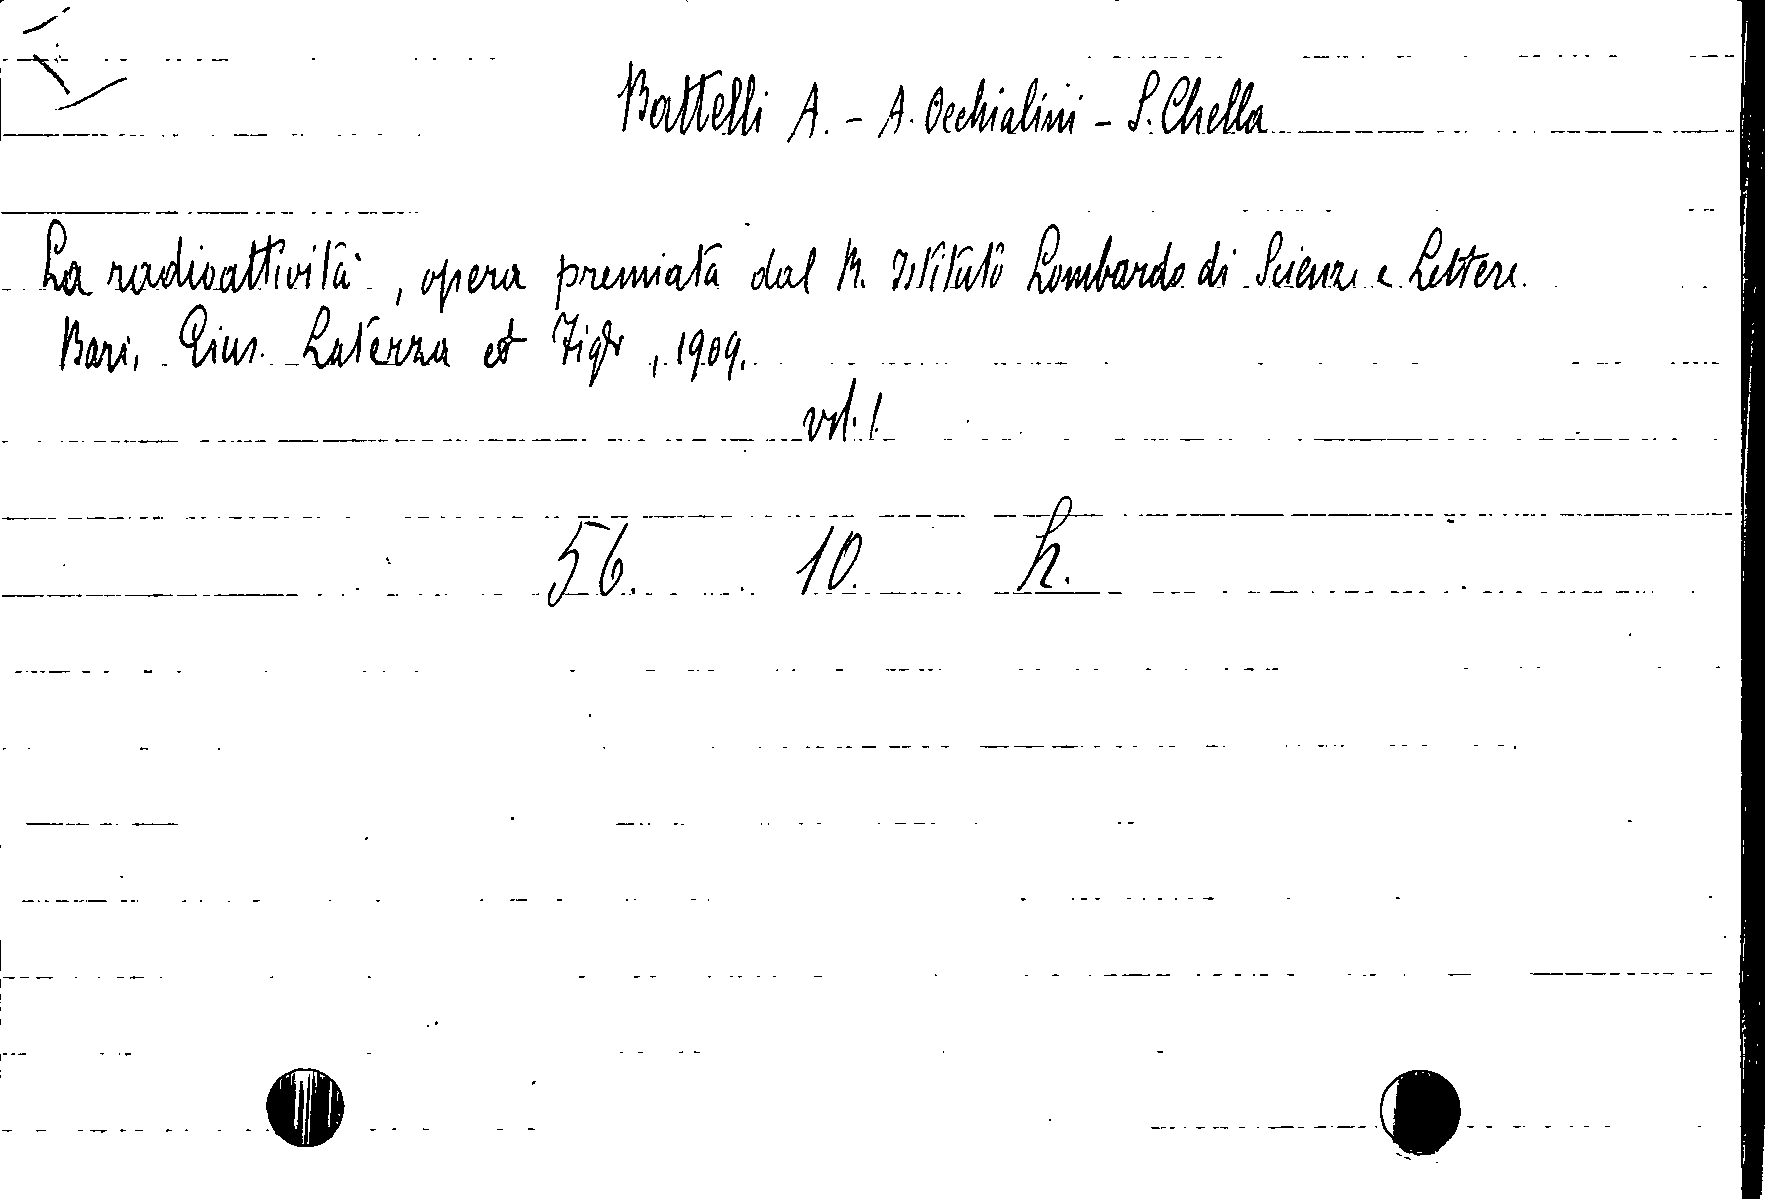 Battelli A. - A. Occhialini - S. Chella
La radioattività, opera premiata dal R. Istituto Lombardo di Scienze e Lettere
Bari, Gius. Laterza et Figli, 1909.
vol. 1
56. 10. h.